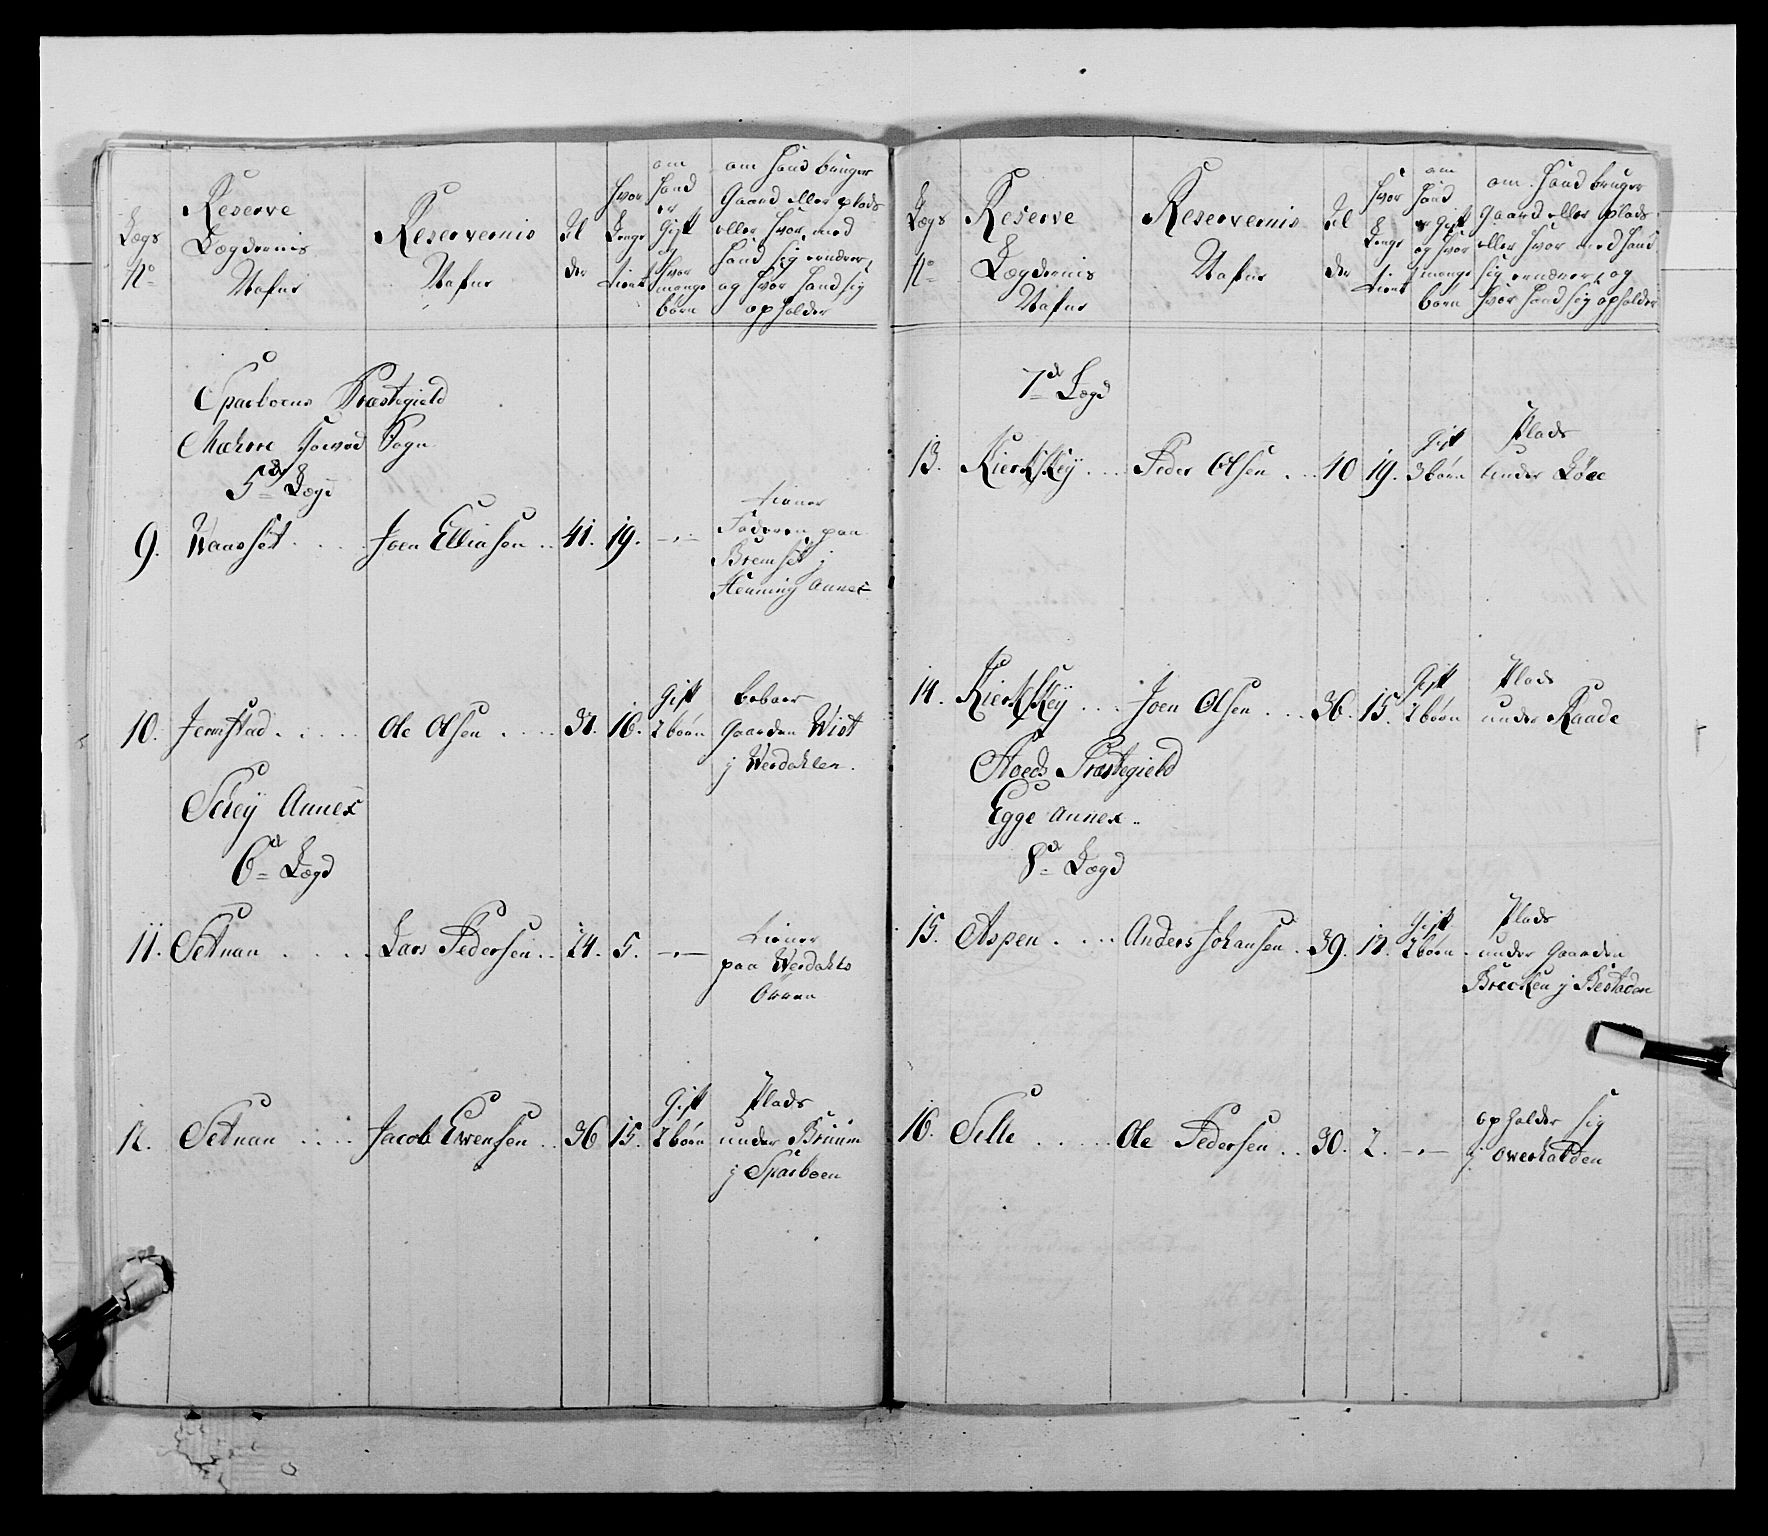 Lægs
No
Reserve
Lægdernis
Nafne
Reservernis
Nafne
Al
der
Hvor
Længe
tient
om
hand
er
Gift
og
Hvor
mange
børn
om hand bruger
Gaard eller plads
eller hvor med
hand sig ernærer,
og hvor hand sig
opholder
Sparboens Præstegield
Mæhrre Hoeved Sogn
5te Lægd
9. Wansset . . . Joen Ellinsen . . 41. 19. -,-
tiener
Faderen paa
Bremset j
Henning Annex
10. Jermstad . . . Ole Olsen . . . 31. 10.
Gift
2 børn
beboer
Gaarden Wist
j Werdahlen.
Schey Annex
6te Lægd
11. Setnan . . . Lars Pedersen . . 24. 5. -,-
tiener
paa Werdahls
Øren
12. Setnan . . . Jacob Ewensen . . 36 15.
Gift
2 børn
Plads
under Bruum
j Sparboen
Lægs
No
Reserve
Lægdernis
Nafne
Reservernis
Nafne
Al
der
Hvor
Længe
tient
om
hand
er Gift
og hvor
mange
børn
om hand bruger
Gaard eller plads
eller hvor med hand
sig ernærer, og
hvor hand sig opholder
7de Lægd
13. Kierkskey . . . Peder Olsen . . . 40 19.
Gift
3 børn
Plads
under Løee
14. Kierkskey . . . Joen Olsen . . . 36. 15.
Gift
2 børn
Plads
under Raade
Stoeds Præstegield
Egge Annex
8de Lægd
15. Aspen . . . Anders Johansen . 39. 12.
Gift
2 børn.
Plads
under Gaarden
Brecken j Bestaden
16. Selle . . . Ole Pedersen . . 30. 2. -,-
opholder sig
j Owerhalden